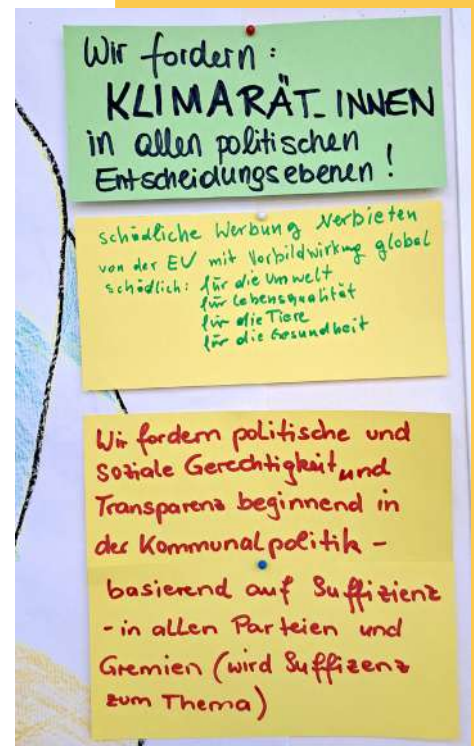 Wir fordern:
KLIMARÄT_INNEN
in allen politischen
Entscheidungsebenen!
schädliche Werbung verbieten
von der EU mit Vorbildwirkung global
schädlich: für die Umwelt
für Lebensqualität
für die Tiere
für die Gesundheit
Wir fordern politische und
soziale Gerechtigkeit und
Transparenz beginnend in
der Kommunalpolitik -
basierend auf Suffizienz
- in allen Parteien und
Gremien (wird Suffizenz
zum Thema)